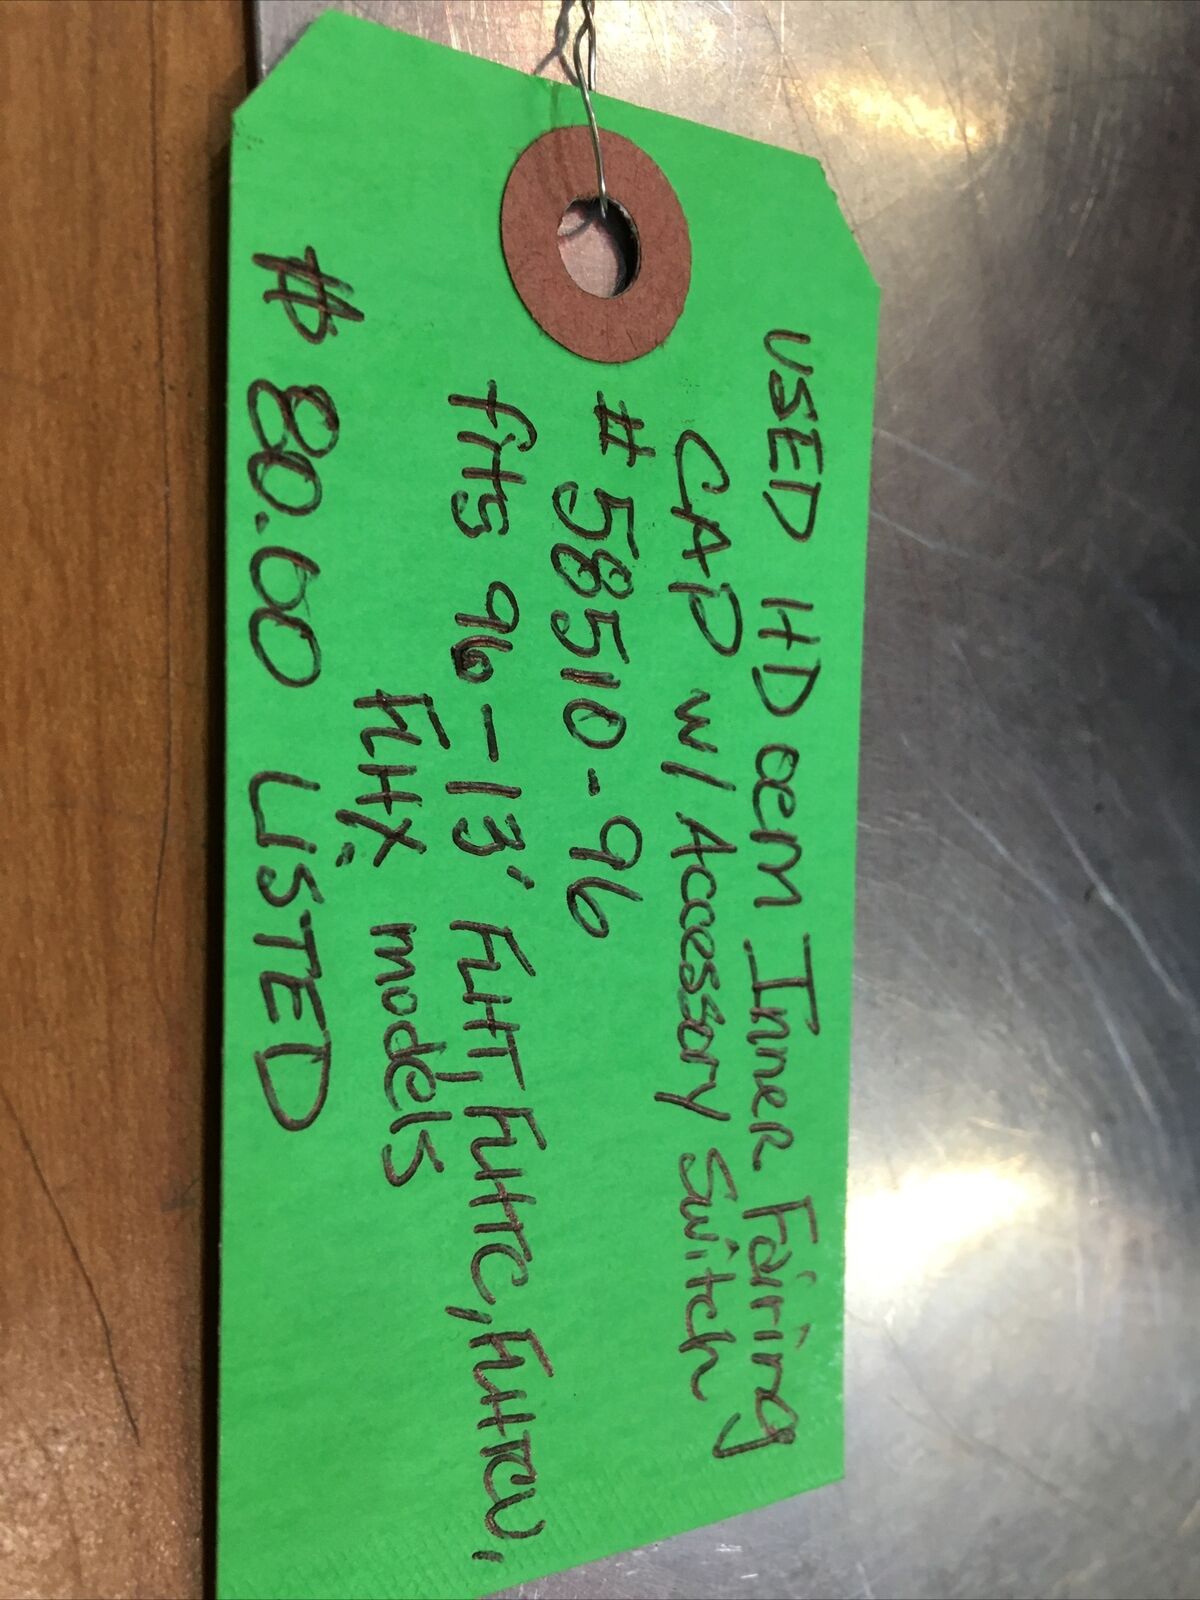 USED HD oem Inner Fairing
CAP w/ Accessory Switch
# 58510-96
fits 96-13' FLHT, FLHTC, FLHTCU,
FLHX models
$ 80.00 LISTED